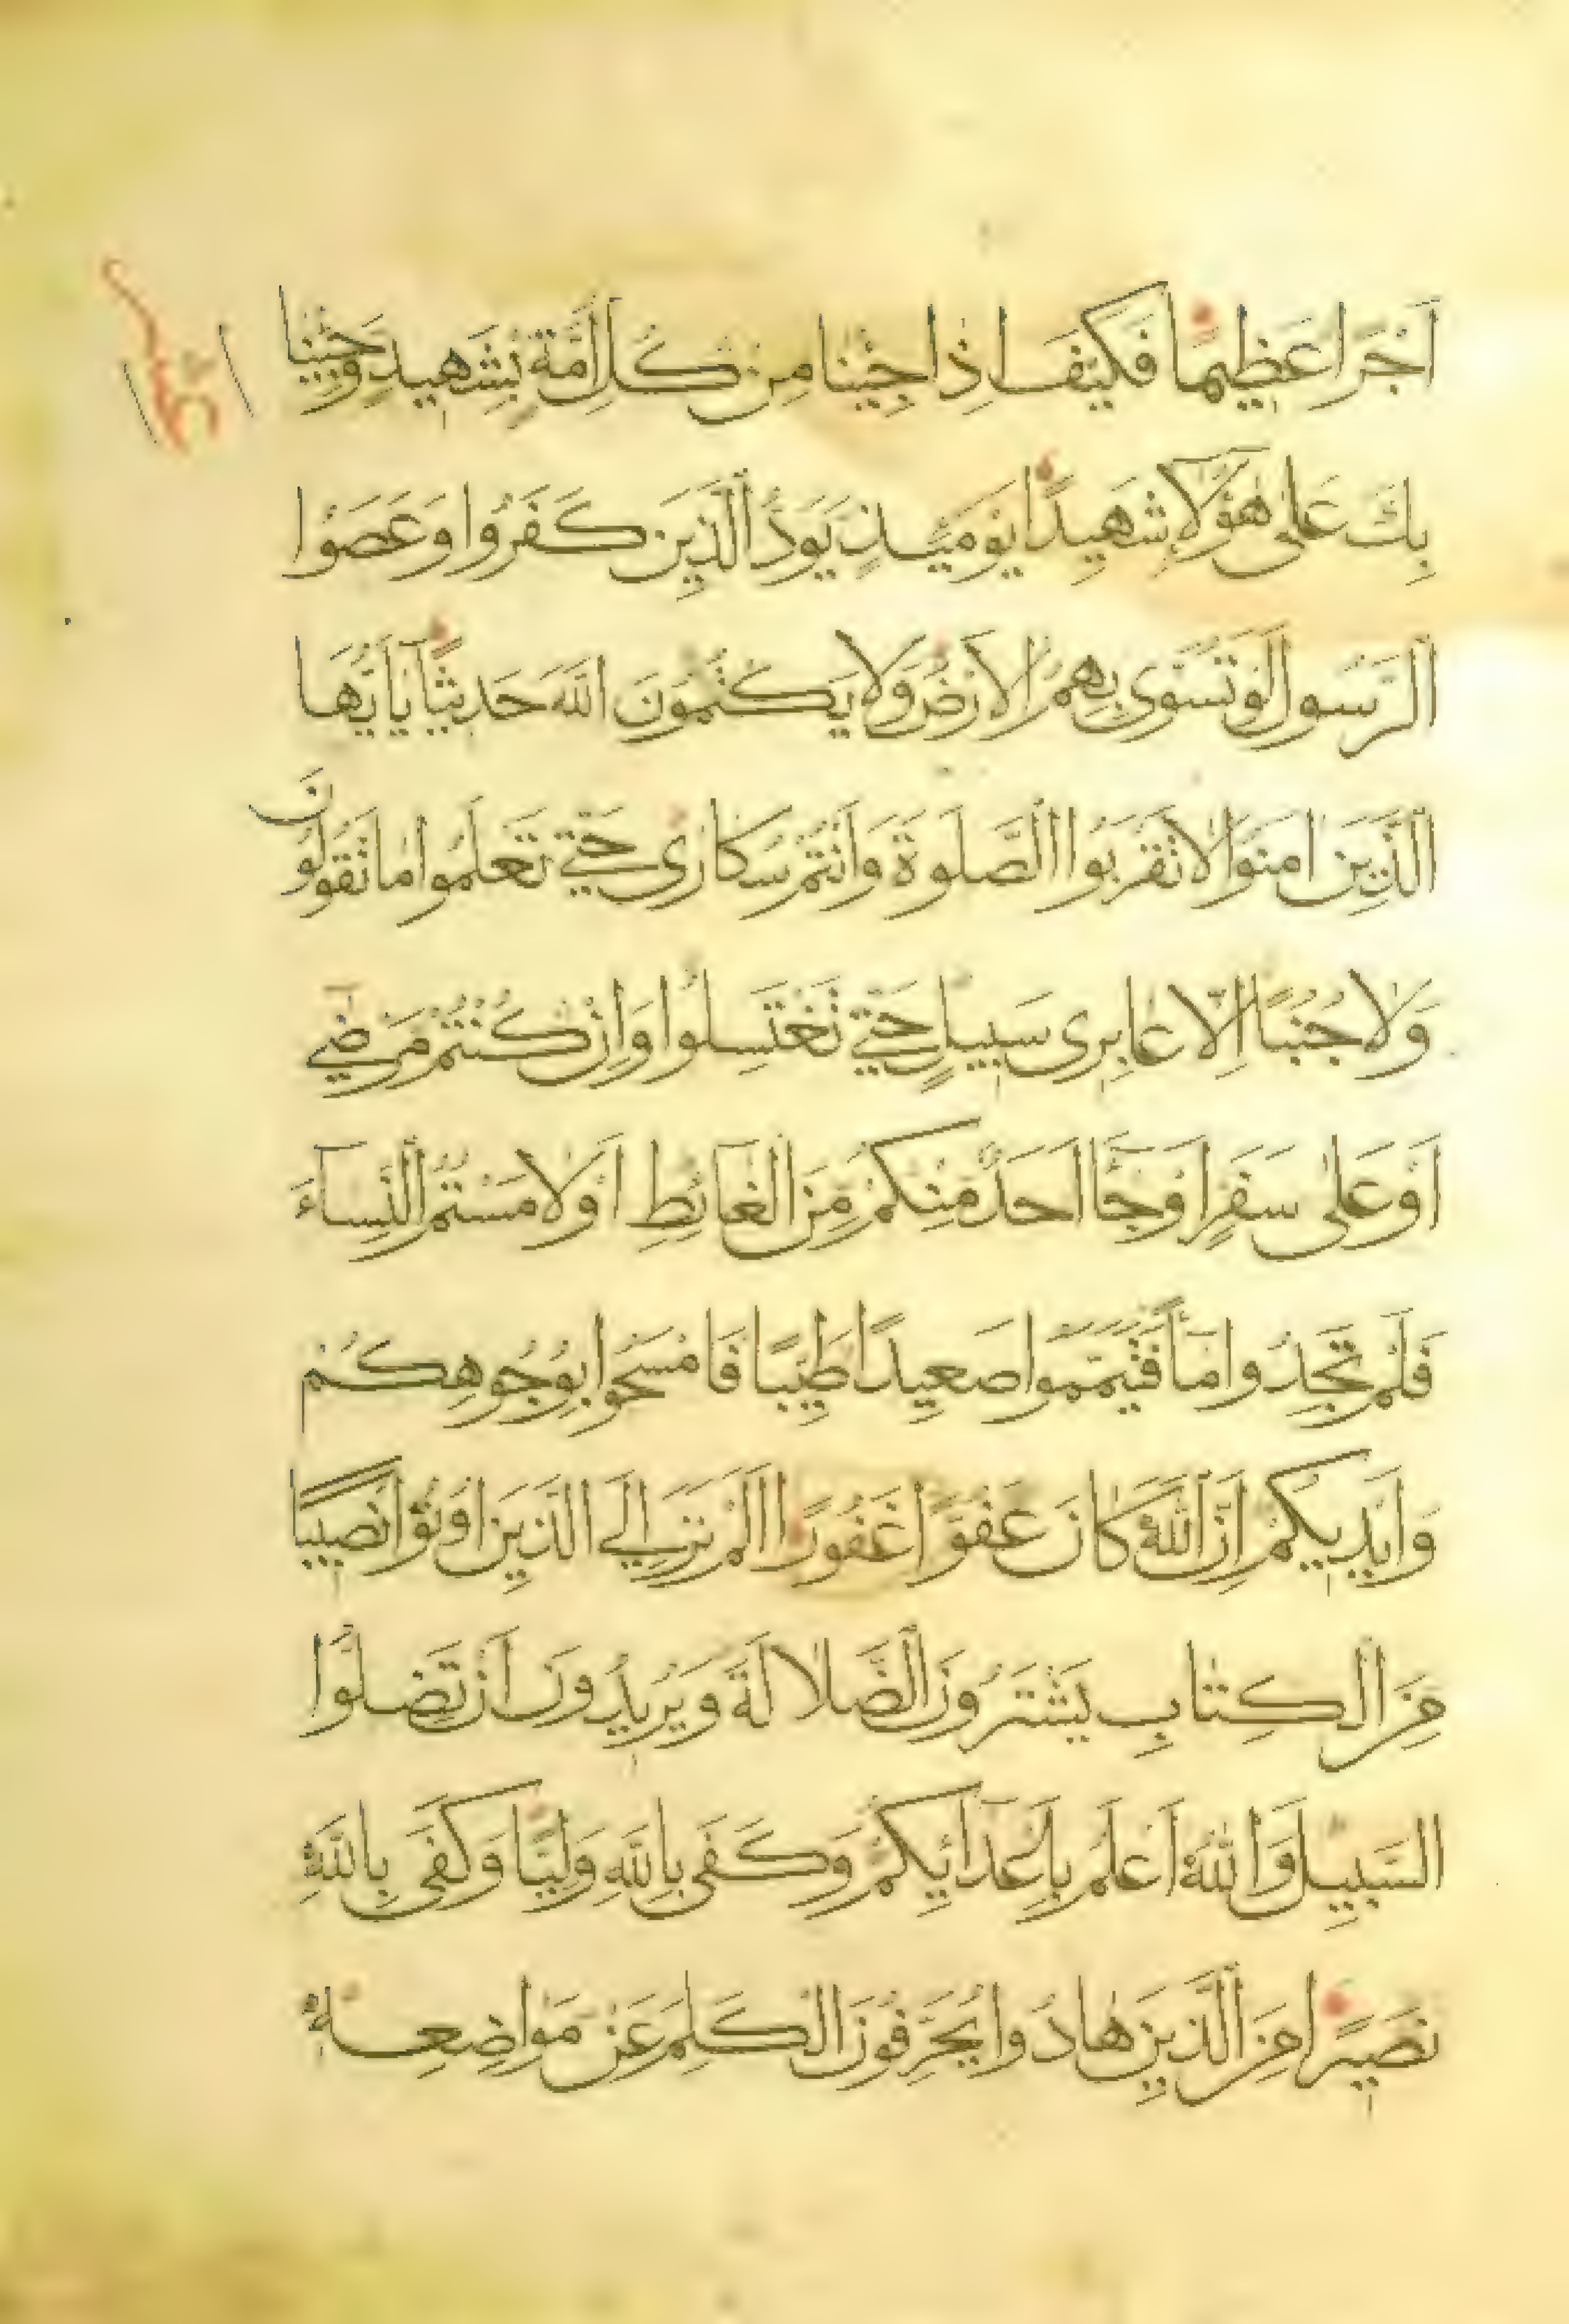 اَجْرًا عَظِيمًا فَكَيْفَ اِذَا جِئْنَا مِنْ كُلِّ اُمَّةٍ بِشَهِيدٍ وَجِئْنَا
بِكَ عَلٰى هٰؤُلَاءِ شَهِيدًا يَوْمَئِذٍ يَوَدُّ الَّذِينَ كَفَرُوا وَعَصَوُا
الرَّسُولَ لَوْ تُسَوّٰى بِهِمُ الْاَرْضُ وَلَا يَكْتُمُونَ اللّٰهَ حَدِيثًا يَا اَيُّهَا
الَّذِينَ اٰمَنُوا لَا تَقْرَبُوا الصَّلٰوةَ وَاَنْتُمْ سُكَارٰى حَتّٰى تَعْلَمُوا مَا تَقُولُونَ
وَلَا جُنُبًا اِلَّا عَابِرِى سَبِيلٍ حَتّٰى تَغْتَسِلُوا وَاِنْ كُنْتُمْ مَرْضٰى
اَوْ عَلٰى سَفَرٍ اَوْ جَٓاءَ اَحَدٌ مِنْكُمْ مِنَ الْغَٓائِطِ اَوْ لَامَسْتُمُ النِّسَٓاءَ
فَلَمْ تَجِدُوا مَٓاءً فَتَيَمَّمُوا صَعِيدًا طَيِّبًا فَامْسَحُوا بِوُجُوهِكُمْ
وَاَيْدِيكُمْ اِنَّ اللّٰهَ كَانَ عَفُوًّا غَفُورًا اَلَمْ تَرَ اِلَى الَّذِينَ اُوتُوا نَصِيبًا
مِنَ الْكِتَابِ يَشْتَرُونَ الضَّلَالَةَ وَيُرِيدُونَ اَنْ تَضِلُّوا
السَّبِيلَ وَاللّٰهُ اَعْلَمُ بِاَعْدَٓائِكُمْ وَكَفٰى بِاللّٰهِ وَلِيًّا وَكَفٰى بِاللّٰهِ
نَصِيرًا مِنَ الَّذِينَ هَادُوا يُحَرِّفُونَ الْكَلِمَ عَنْ مَوَاضِعِهِ